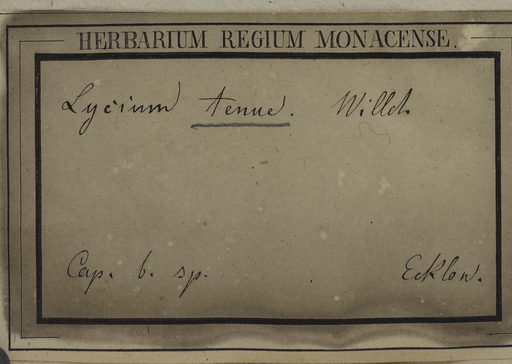 HERBARIUM REGIUM MONACENSE.
Lycium tenue. Willd.
Cap. b. sp. Ecklon.